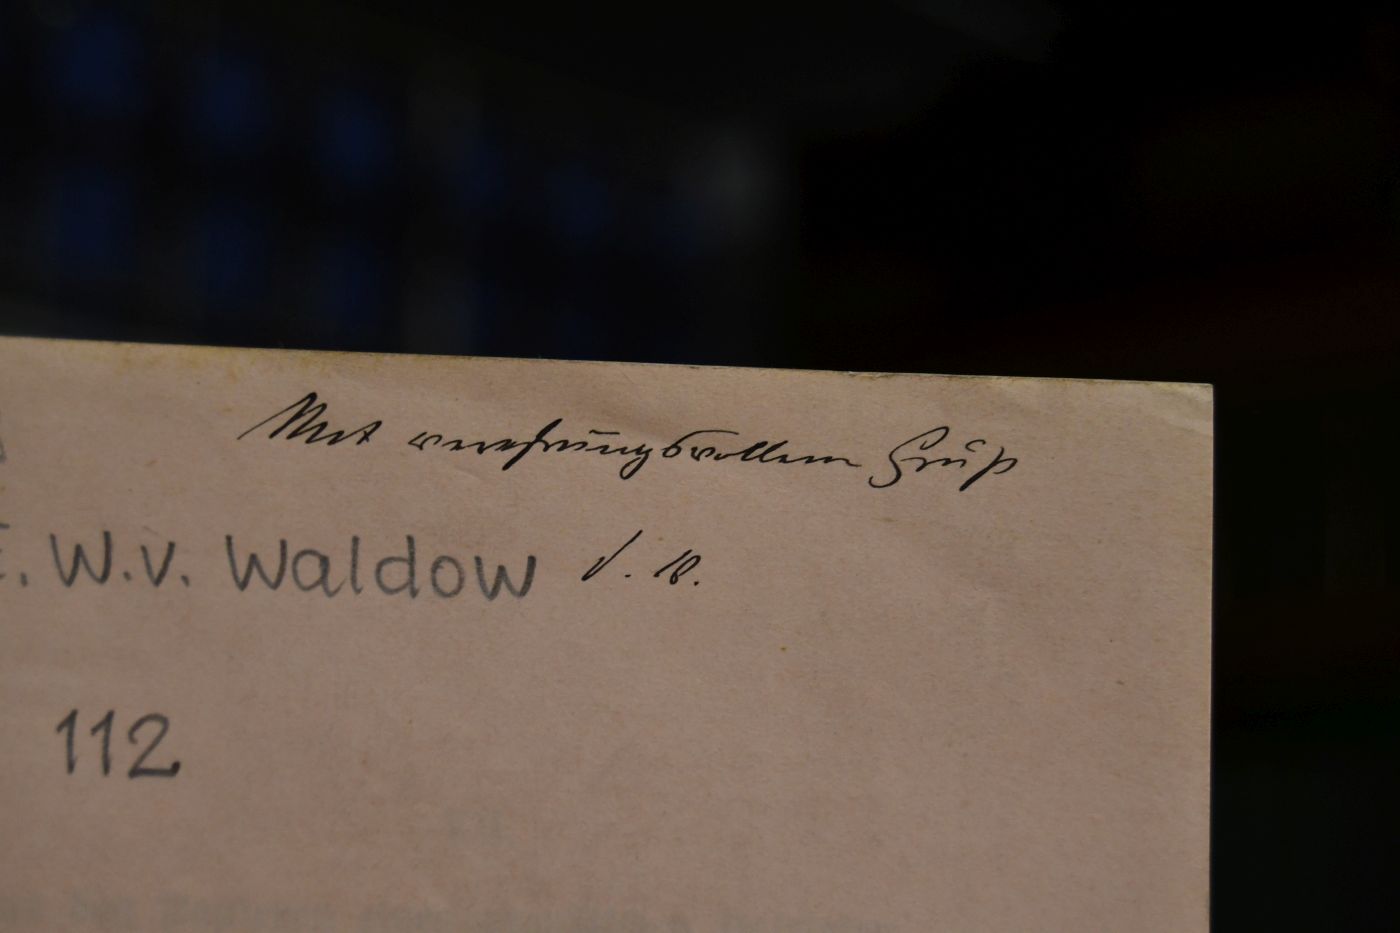 Mit verehrungsvollem Gruß
W. v. Waldow d. V.
112